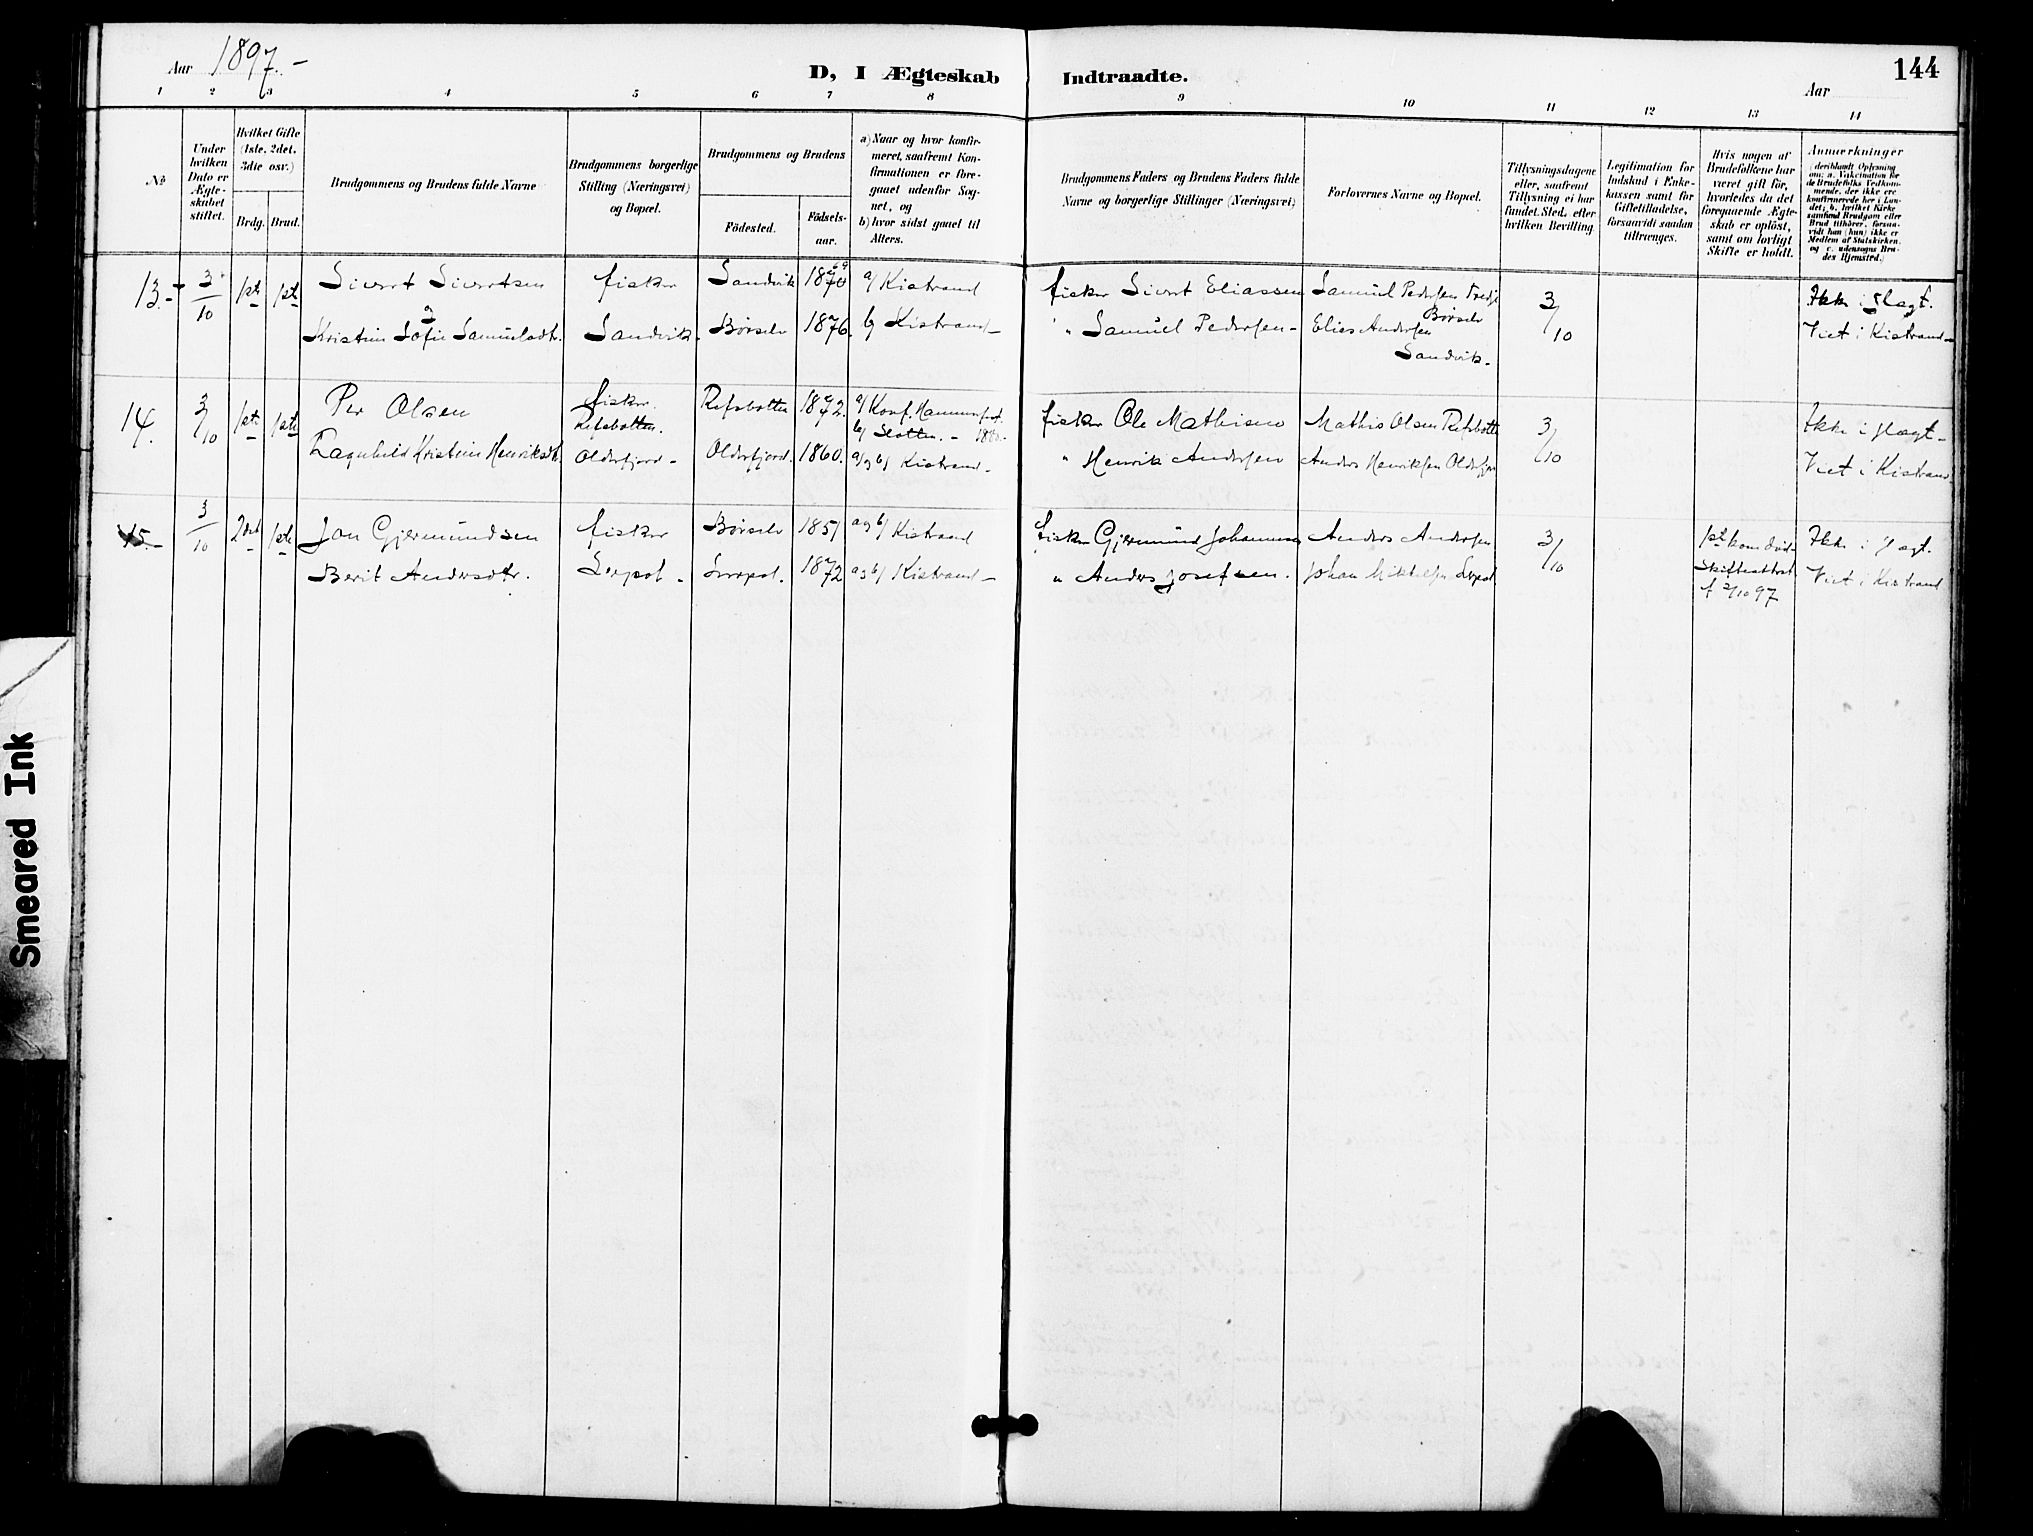 Aar 1897.-
D, I Ægteskab Indtraadte.
144
Aar
1 2 3 4 5 6 7 8 9 10 11 12 13 14
No
Under hvilken Dato er Ægteskabet stiftet.
Hvilket Gifte (1ste, 2det, 3die osv.)
Brdg. Brud.
Brudgommens og Brudens fulde Navne
Brudgommens borgerlige Stilling (Næringsvei) og Bopæl.
Brudgommens og Brudens
Födested.
Födsels-aar.
a) Naar og hvor konfirmeret, saafremt Konfirmationen er foregaaet udenfor Sognet, og
b) hvor sidst gaaet til Alters.
Brudgommens Faders og Brudens Faders fulde Navne og borgerlige Stillinger (Næringsvei)
Forlovernes Navne og Bopæl.
Tillysningsdagene eller, saafremt Tillysning ei har fundet Sted, efter hvilken Bevilling
Legitimation for Indskud i Enkekassen samt for Giftetilladelse, forsaavidt saadan tiltrænges.
Hvis nogen af Brudefolkene har været gift før, hvorledes da det foregaaende Ægteskab er oplöst, samt om lovligt Skifte er holdt.
Anmærkninger (deriblandt Oplysning om: a. Vakcination for de Brudefolks Vedkommende, der ikke ere konfirmerede her i Landet; b. hvilket Kirkesamfund Brudgom eller Brud tilhörer, forsaavidt han (hun) ikke er Medlem af Statskirken, og c. udensogns Brudes Hjemsted.)
13.- 3/10 1ste 1ste Sivert Sivertsen fisker Sandvik 1870 69 a/ Kistrand fisker Sivert Eliassen Samuel Pedersen 3/10 Ikke i slægt.
Børselv
Kristine Sofie Samuelsdtr. Sandvik. Børselv 1876. b/ Kistrand- " Samuel Pedersen- Elies Andersen Viet i Kistrand-
Sandvik-
14. 3/10 1ste 1ste Per Olsen fisker Refsbotten. Refsbotten 1872. a/ Konf. Hammerfest b/ Slotten.- fisker Ole Mathisen Mathis Olsen Refsbotte 3/10 Ikke i slægt-
Ragnhild Kristine Henriksdtr. Olderfjord- Olderfjord. 1860. a/ og b/ Kistrand- " Henrik Andersen Anders Henriksen Olderfjor Viet i Kistrand
15.- 3/10 2det 1ste Jon Gjermundsen fisker Børselv 1851 a og b/ Kistrand fisker Gjermund Johannesen Anders Andersen 3/10 1ste Skifteattest f 2/10 97 Ikke i slægt.
Berit Andersdtr. Leirpol- Leirpol. 1872 a og b/ Kistrand- " Anders Josefsen. Johan Mikkelsen Leirpol Viet i Kistrand
Smeared Ink